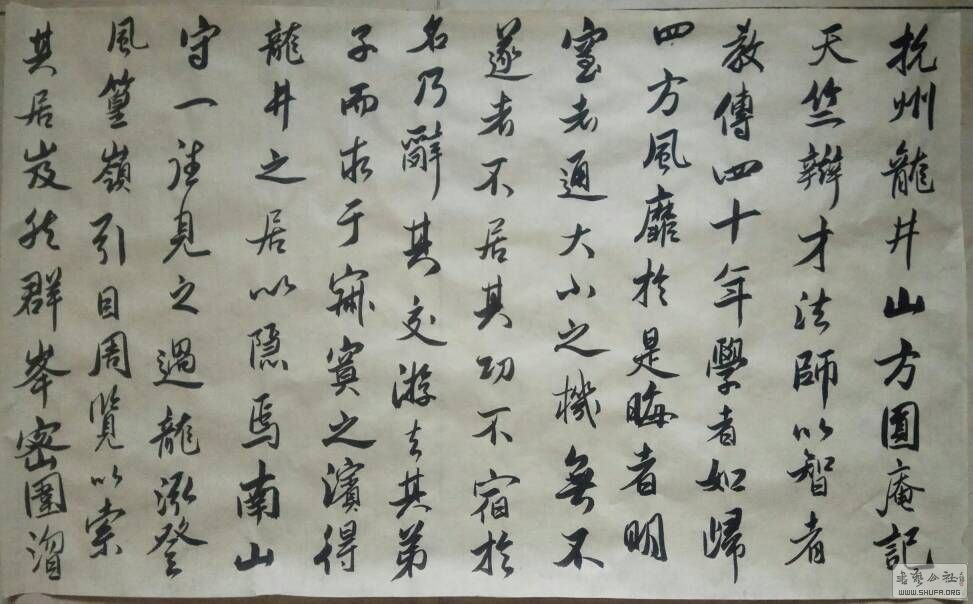 杭州龍井山方圓庵記
天竺辯才法師以智者
教傳四十年學者如歸
四方風靡於是晦者明
窒者通大小之機無不
遂者不居其功不宿於
名乃辭其交游去其弟
子而求于寂寞之濱得
龍井之居以隱焉南山
守一往見之過龍泓登
風篁嶺引目周覽以索
其居岌然群峯密圍溜
书艺公社
WWW.SHUFA.ORG